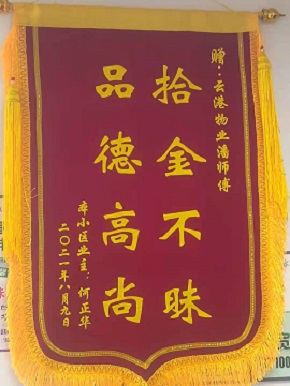 赠：云港物业潘师傅
拾金不昧
品德高尚
本小区业主：何正华
二〇二一年八月九日